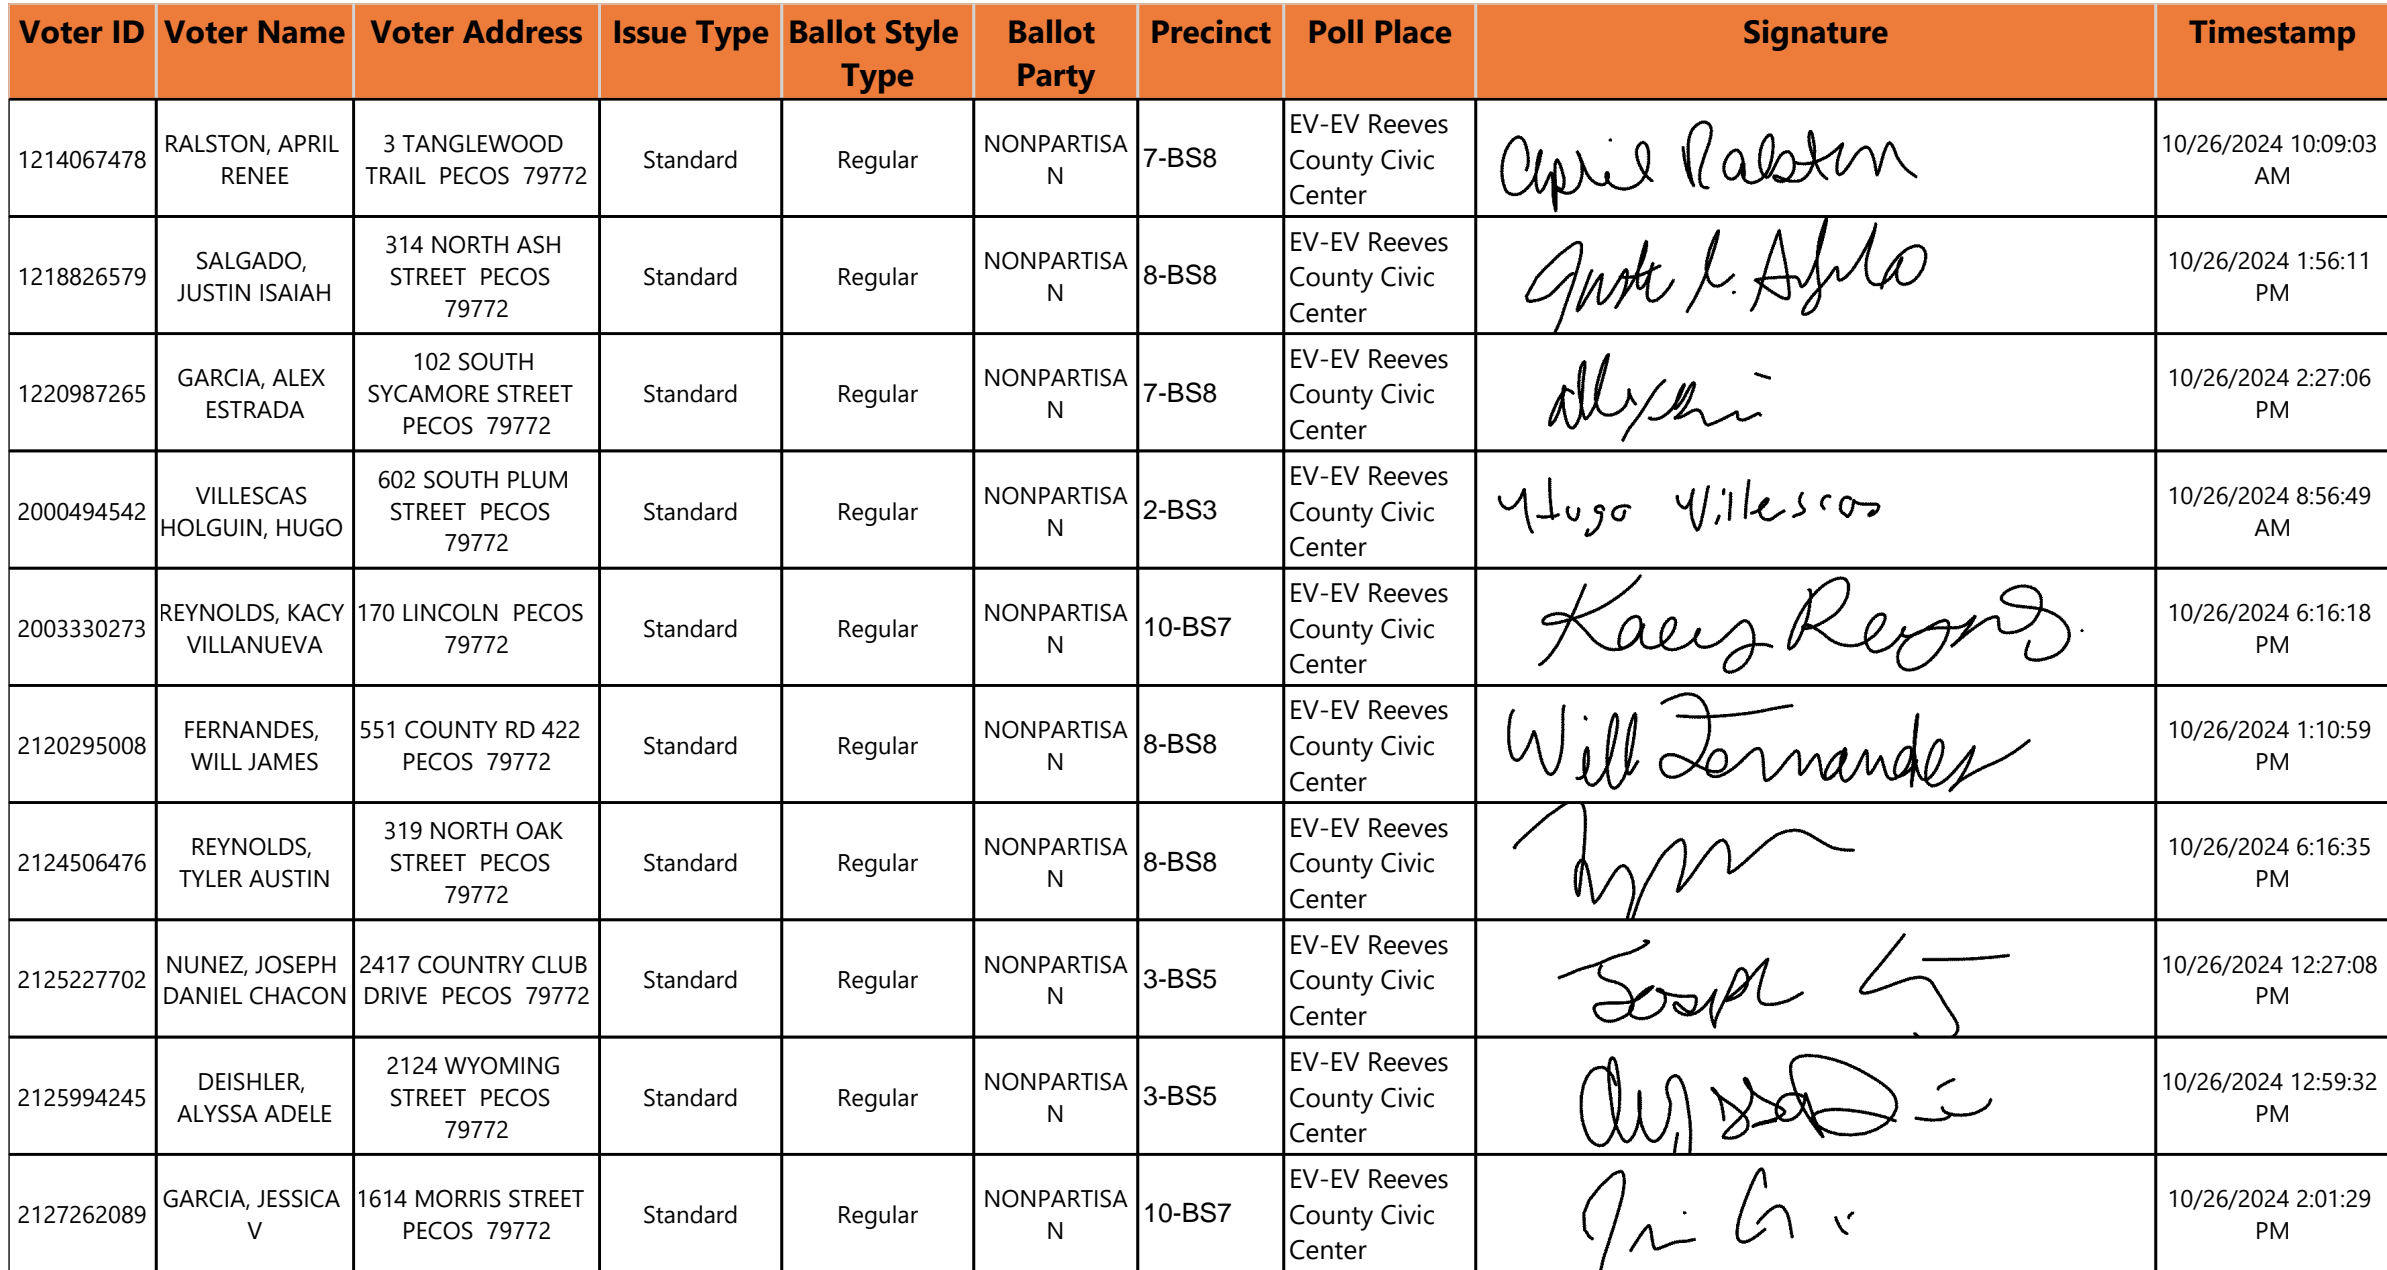 Voter ID Voter Name Voter Address Issue Type Ballot Style Type Ballot Party Precinct Poll Place Signature Timestamp
1214067478 RALSTON, APRIL RENEE 3 TANGLEWOOD TRAIL PECOS 79772 Standard Regular NONPARTISAN 7-BS8 EV-EV Reeves County Civic Center April Ralston 10/26/2024 10:09:03 AM
1218826579 SALGADO, JUSTIN ISAIAH 314 NORTH ASH STREET PECOS 79772 Standard Regular NONPARTISAN 8-BS8 EV-EV Reeves County Civic Center 10/26/2024 1:56:11 PM
1220987265 GARCIA, ALEX ESTRADA 102 SOUTH SYCAMORE STREET PECOS 79772 Standard Regular NONPARTISAN 7-BS8 EV-EV Reeves County Civic Center 10/26/2024 2:27:06 PM
2000494542 VILLESCAS HOLGUIN, HUGO 602 SOUTH PLUM STREET PECOS 79772 Standard Regular NONPARTISAN 2-BS3 EV-EV Reeves County Civic Center Hugo Villescas 10/26/2024 8:56:49 AM
2003330273 REYNOLDS, KACY VILLANUEVA 170 LINCOLN PECOS 79772 Standard Regular NONPARTISAN 10-BS7 EV-EV Reeves County Civic Center Kacy Reynolds 10/26/2024 6:16:18 PM
2120295008 FERNANDES, WILL JAMES 551 COUNTY RD 422 PECOS 79772 Standard Regular NONPARTISAN 8-BS8 EV-EV Reeves County Civic Center Will Fernandes 10/26/2024 1:10:59 PM
2124506476 REYNOLDS, TYLER AUSTIN 319 NORTH OAK STREET PECOS 79772 Standard Regular NONPARTISAN 8-BS8 EV-EV Reeves County Civic Center 10/26/2024 6:16:35 PM
2125227702 NUNEZ, JOSEPH DANIEL CHACON 2417 COUNTRY CLUB DRIVE PECOS 79772 Standard Regular NONPARTISAN 3-BS5 EV-EV Reeves County Civic Center Joseph 10/26/2024 12:27:08 PM
2125994245 DEISHLER, ALYSSA ADELE 2124 WYOMING STREET PECOS 79772 Standard Regular NONPARTISAN 3-BS5 EV-EV Reeves County Civic Center 10/26/2024 12:59:32 PM
2127262089 GARCIA, JESSICA V 1614 MORRIS STREET PECOS 79772 Standard Regular NONPARTISAN 10-BS7 EV-EV Reeves County Civic Center 10/26/2024 2:01:29 PM